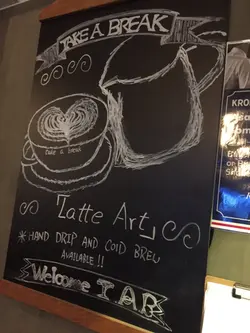 TAKE A BREAK
TAKE A BREAK
「Latte Art」
*HAND DRIP AND COLD BREW
AVAILABLE!!
Welcome TAB
KRO